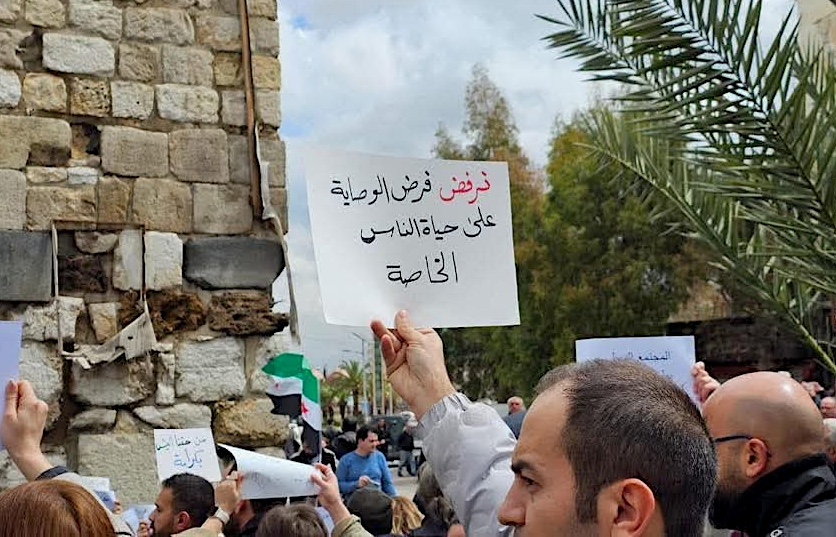 نرفض فرض الوصاية
على حياة الناس
الخاصة
من حقنا العيش
بكرامة
المجتمع